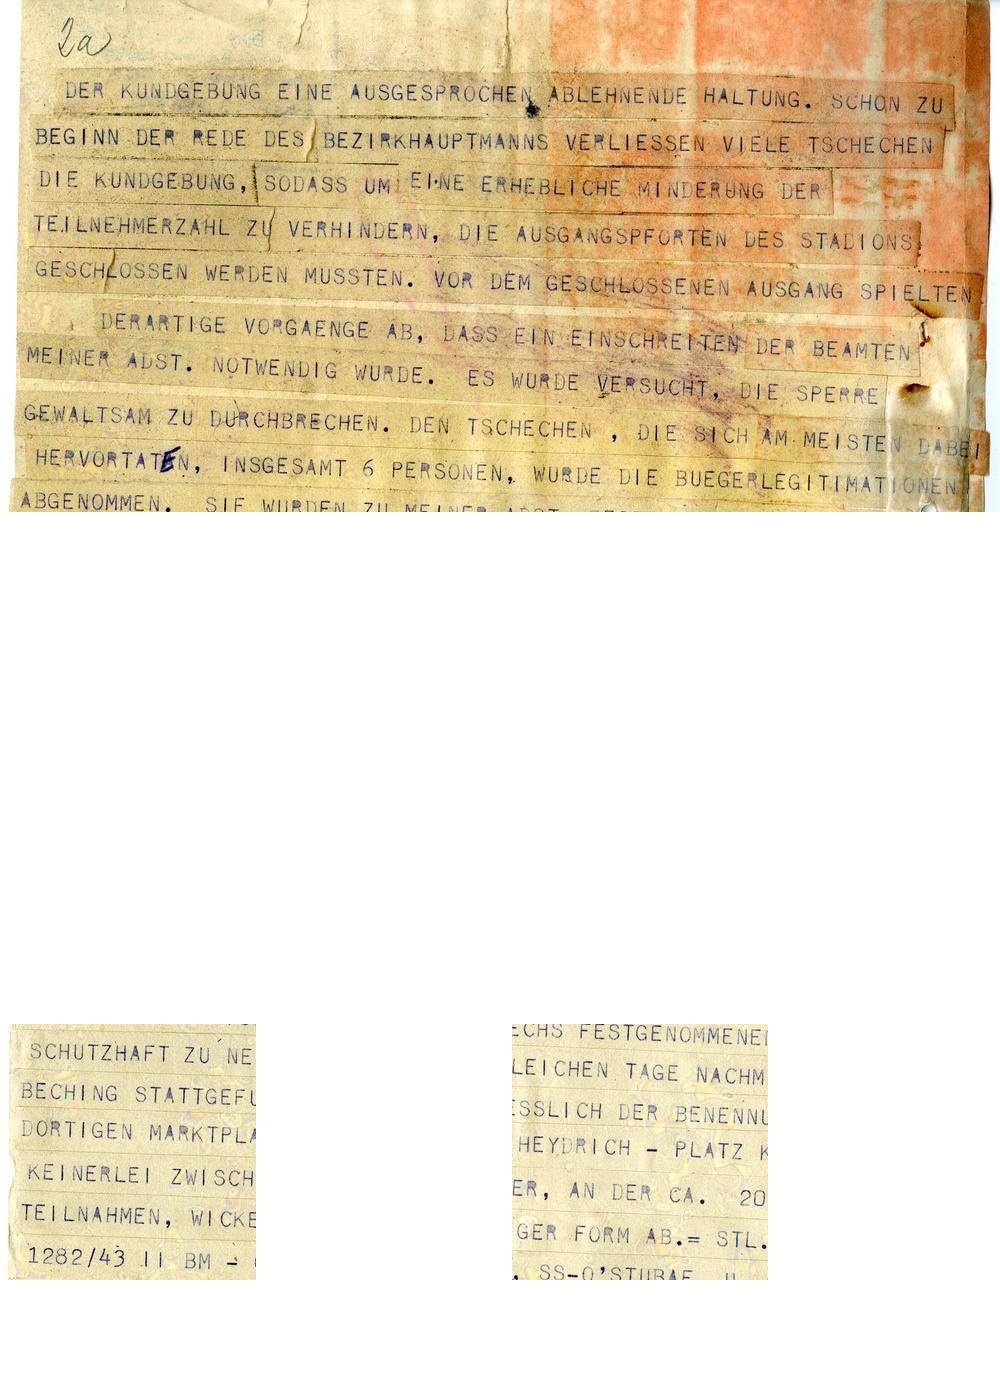 2a
DER KUNDGEBUNG EINE AUSGESPROCHEN ABLEHNENDE HALTUNG. SCHON ZU
BEGINN DER REDE DES BEZIRKHAUPTMANNS VERLIESSEN VIELE TSCHECHEN
DIE KUNDGEBUNG, SODASS UM EINE ERHEBLICHE MINDERUNG DER
TEILNEHMERZAHL ZU VERHINDERN, DIE AUSGANGSPFORTEN DES STADIONS
GESCHLOSSEN WERDEN MUSSTEN. VOR DEM GESCHLOSSENEN AUSGANG SPIELTEN
DERARTIGE VORGAENGE AB, DASS EIN EINSCHREITEN DER BEAMTEN
MEINER ADST. NOTWENDIG WURDE. ES WURDE VERSUCHT, DIE SPERRE
GEWALTSAM ZU DURCHBRECHEN. DEN TSCHECHEN , DIE SICH AM MEISTEN DABEI
HERVORTATEN, INSGESAMT 6 PERSONEN, WURDE DIE BUEGERLEGITIMATIONEN
ABGENOMMEN. SIE WURDEN ZU MEINER ADST.
SCHUTZHAFT ZU NE
BECHING STATTGEFU
DORTIGEN MARKTPLA
KEINERLEI ZWISCH
TEILNAHMEN, WICKE
1282/43 II BM -
ECHS FESTGENOMMENEN
LEICHEN TAGE NACHM
ESSLICH DER BENENNU
HEYDRICH - PLATZ K
ER, AN DER CA. 20
GER FORM AB.= STL.
, SS-O'STUBAF. U.